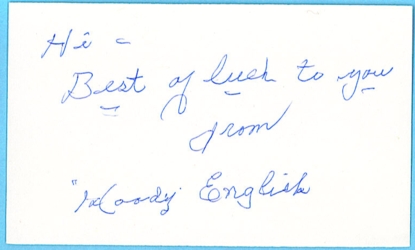 Hi -
Best of luck to you
from
"Woody English